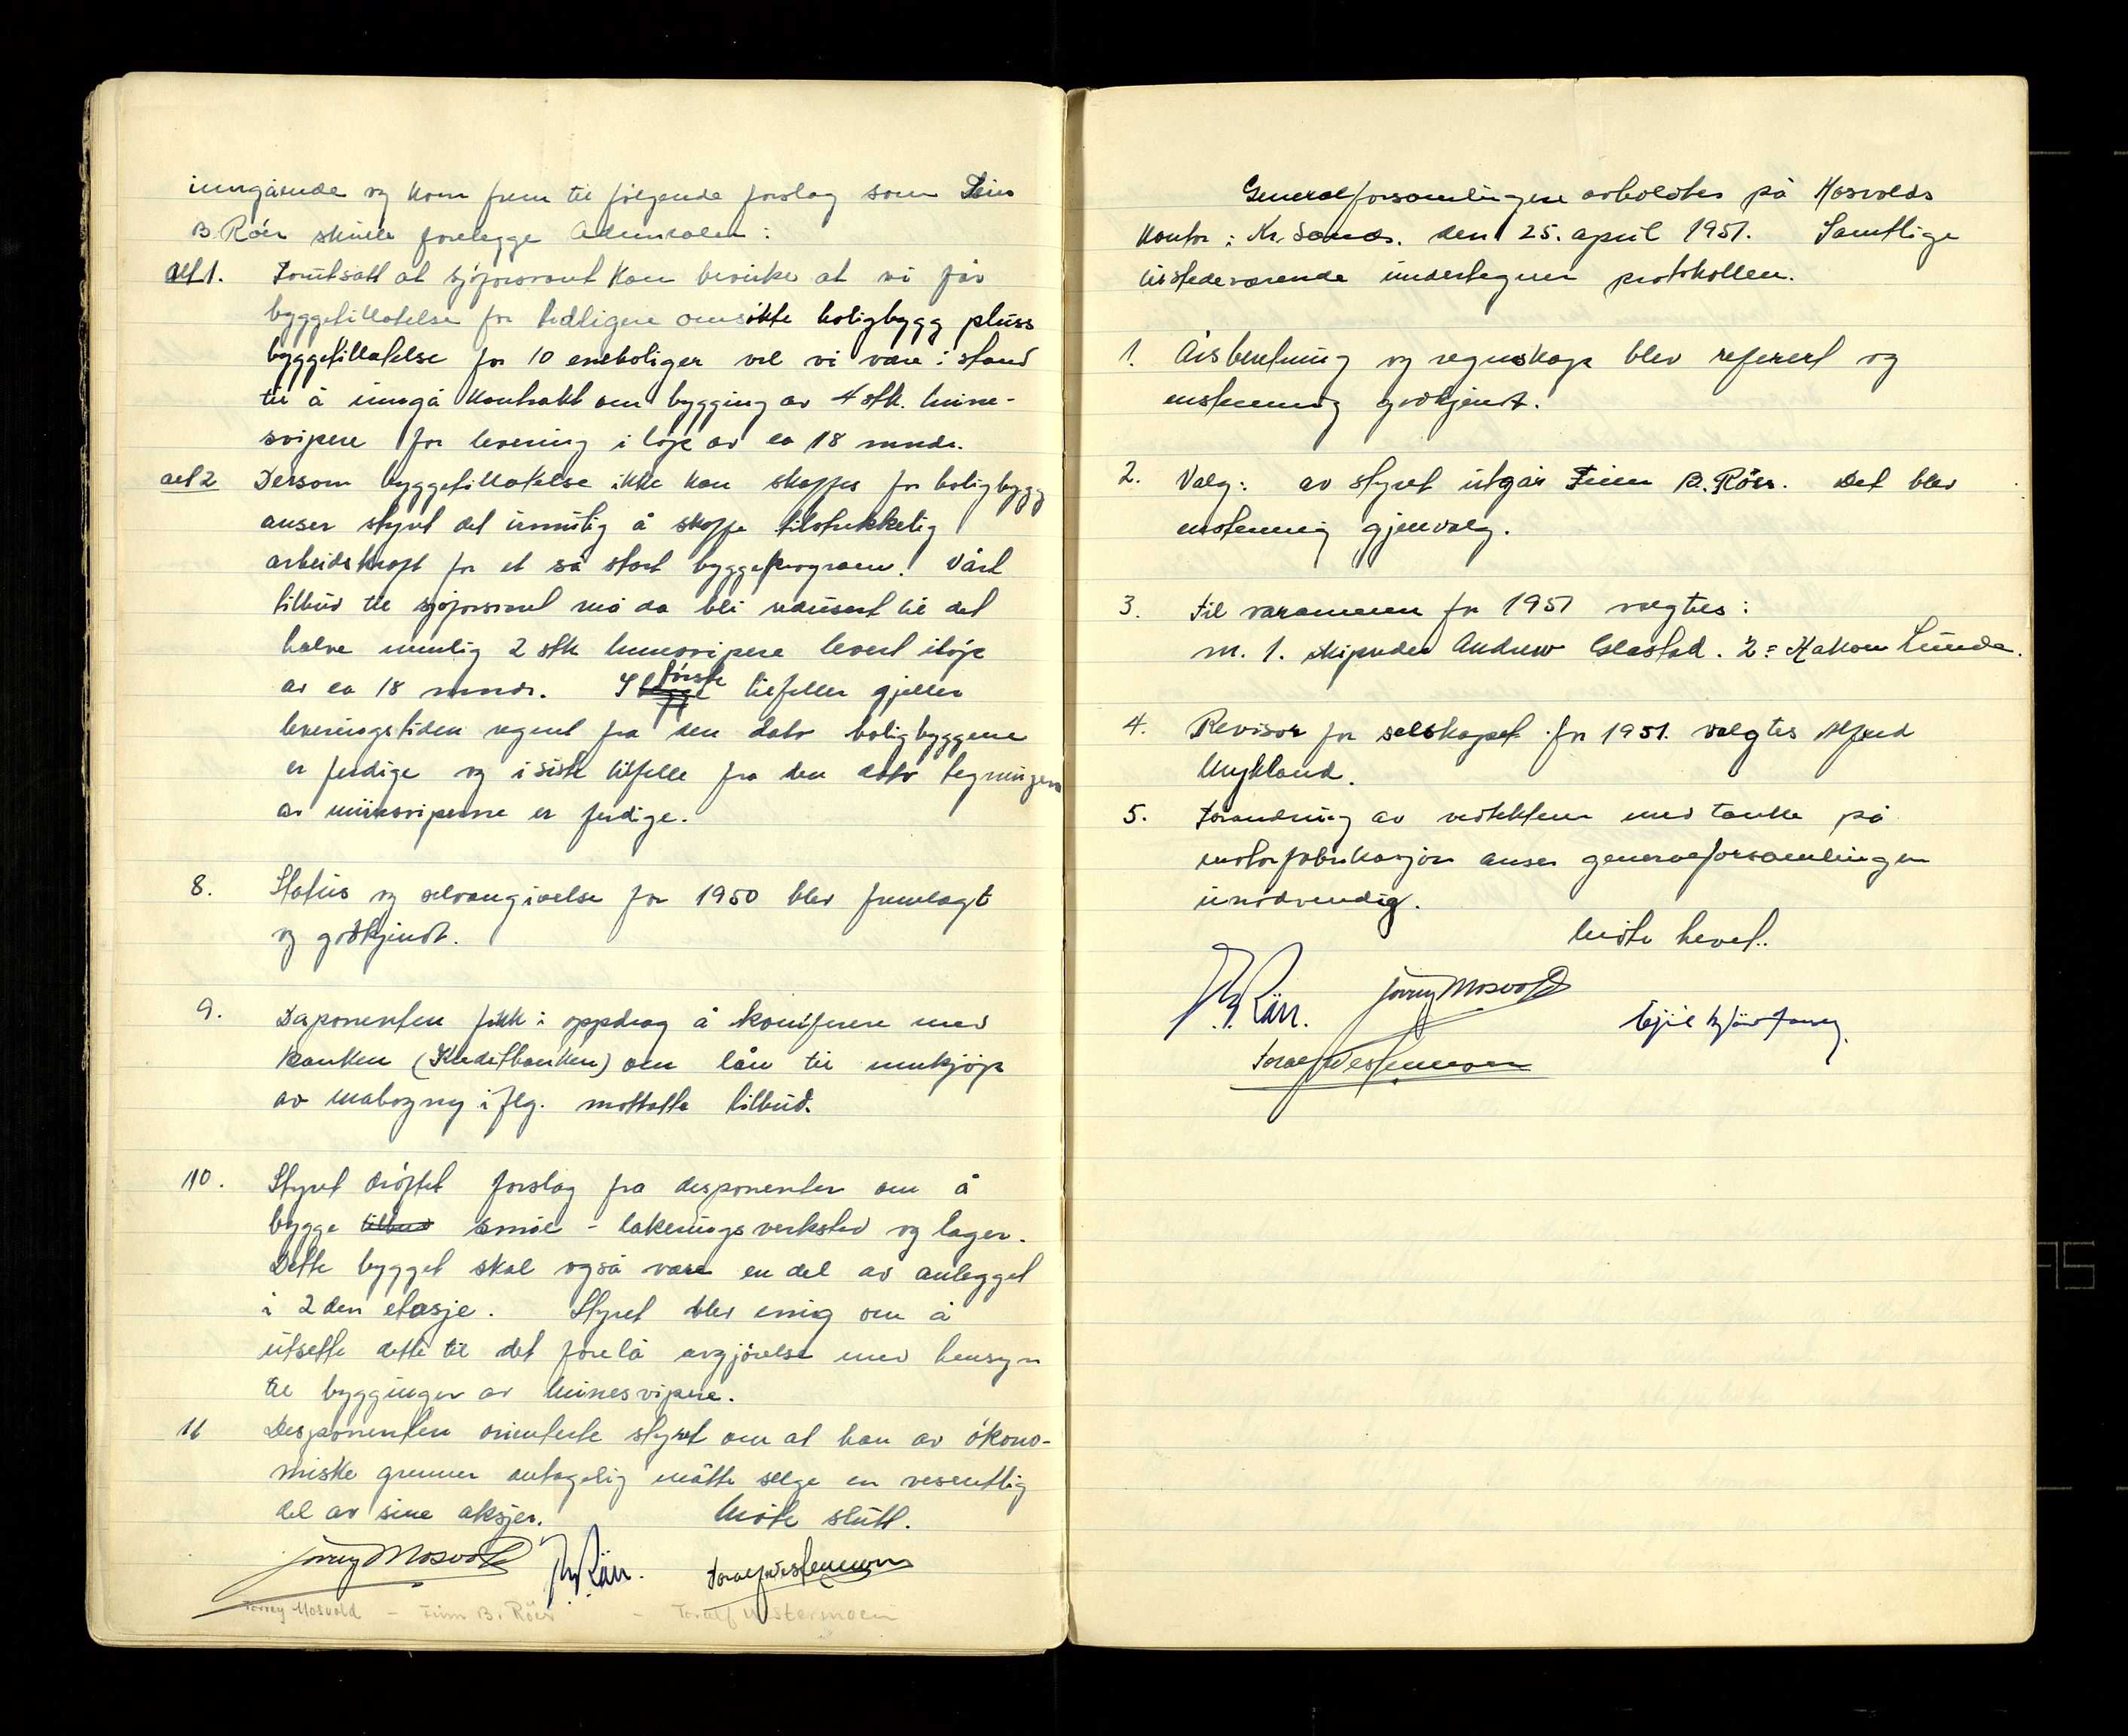 inngående og kom frem til følgende forslag som Finn
B. Röer skulle forelegge Admiralen:
alt 1. Forutsatt at sjøforsvaret kan bevirke at vi får
byggetillatelse for tidligere omsökte boligbygg pluss
byggetillatelse for 10 eneboliger vil vi være i stand
til å inngå kontrakt om bygging av 4 stk. mine-
svipere for levering i löpe av ca 18 mndr.
alt 2 Dersom byggetillatelse ikke kan skaffes for boligbygg
anser styret det umulig å skaffe tilstrekkelig
arbeidskraft for et så stort byggeprogram. Vårt
tilbud til sjöforsvaret må da bli redusert til det
halve nemlig 2 stk minesvipere levert i löpe
av ca 18 mndr. I første tilfelle gjelder
leveringstiden regnet fra den dato boligbyggene
er ferdige og i siste tilfelle fra den dato tegningene
av minesviperne er ferdige.
8. Status og selvangivelse for 1950 blev fremlagt
og godkjendt.
9. Disponenten fikk i oppdrag å konferere med
banken (Kreditbanken) om lån til innkjøp
av mahogny i flg. mottatte tilbud.
10. Styret dröftet forslag fra disponenten om å
bygge tilbud smöe - lakeringsverksted og lager.
Dette bygget skal også være en del av anlegget
i 2den etasje. Styret blev enig om å
utsette dette til det forelå avgjörelse med hensyn
til byggingen av minesvipere.
11 Disponenten orienterte styret om at han av ökono-
miske grunner antagelig måtte selge en vesentlig
del av sine aksjer. Möte slutt.
Torrey Mosvold B. Röer. Toralf Westermoen
Torrey Mosvold - Finn B. Röer - Toralf Westermoen
Generalforsamlingen avholdtes på Mosvolds
kontor i Kr. Sands. den 25. april 1951. Samtlige
tilstedeværende undertegner protokollen.
1. Årsberetning og regnskap blev referert og
enstemmig godkjendt.
2. Valg: av styret utgår Finn B. Röer. Det blev
enstemmig gjenvalg.
3. Til varamenn for 1951 valgtes:
nr. 1. skipsreder Andrew Glastad. 2 = Håkon Lunde.
4. Revisor for selskapet for 1951. valgtes Alfred
Mykland.
5. Forandring av vedtektene med tanke på
motorfabrikasjon anser generalforsamlingen
unödvendig.
Möte hevet..
B. Röer. Torrey Mosvold
Egil
Toralf Westermoen